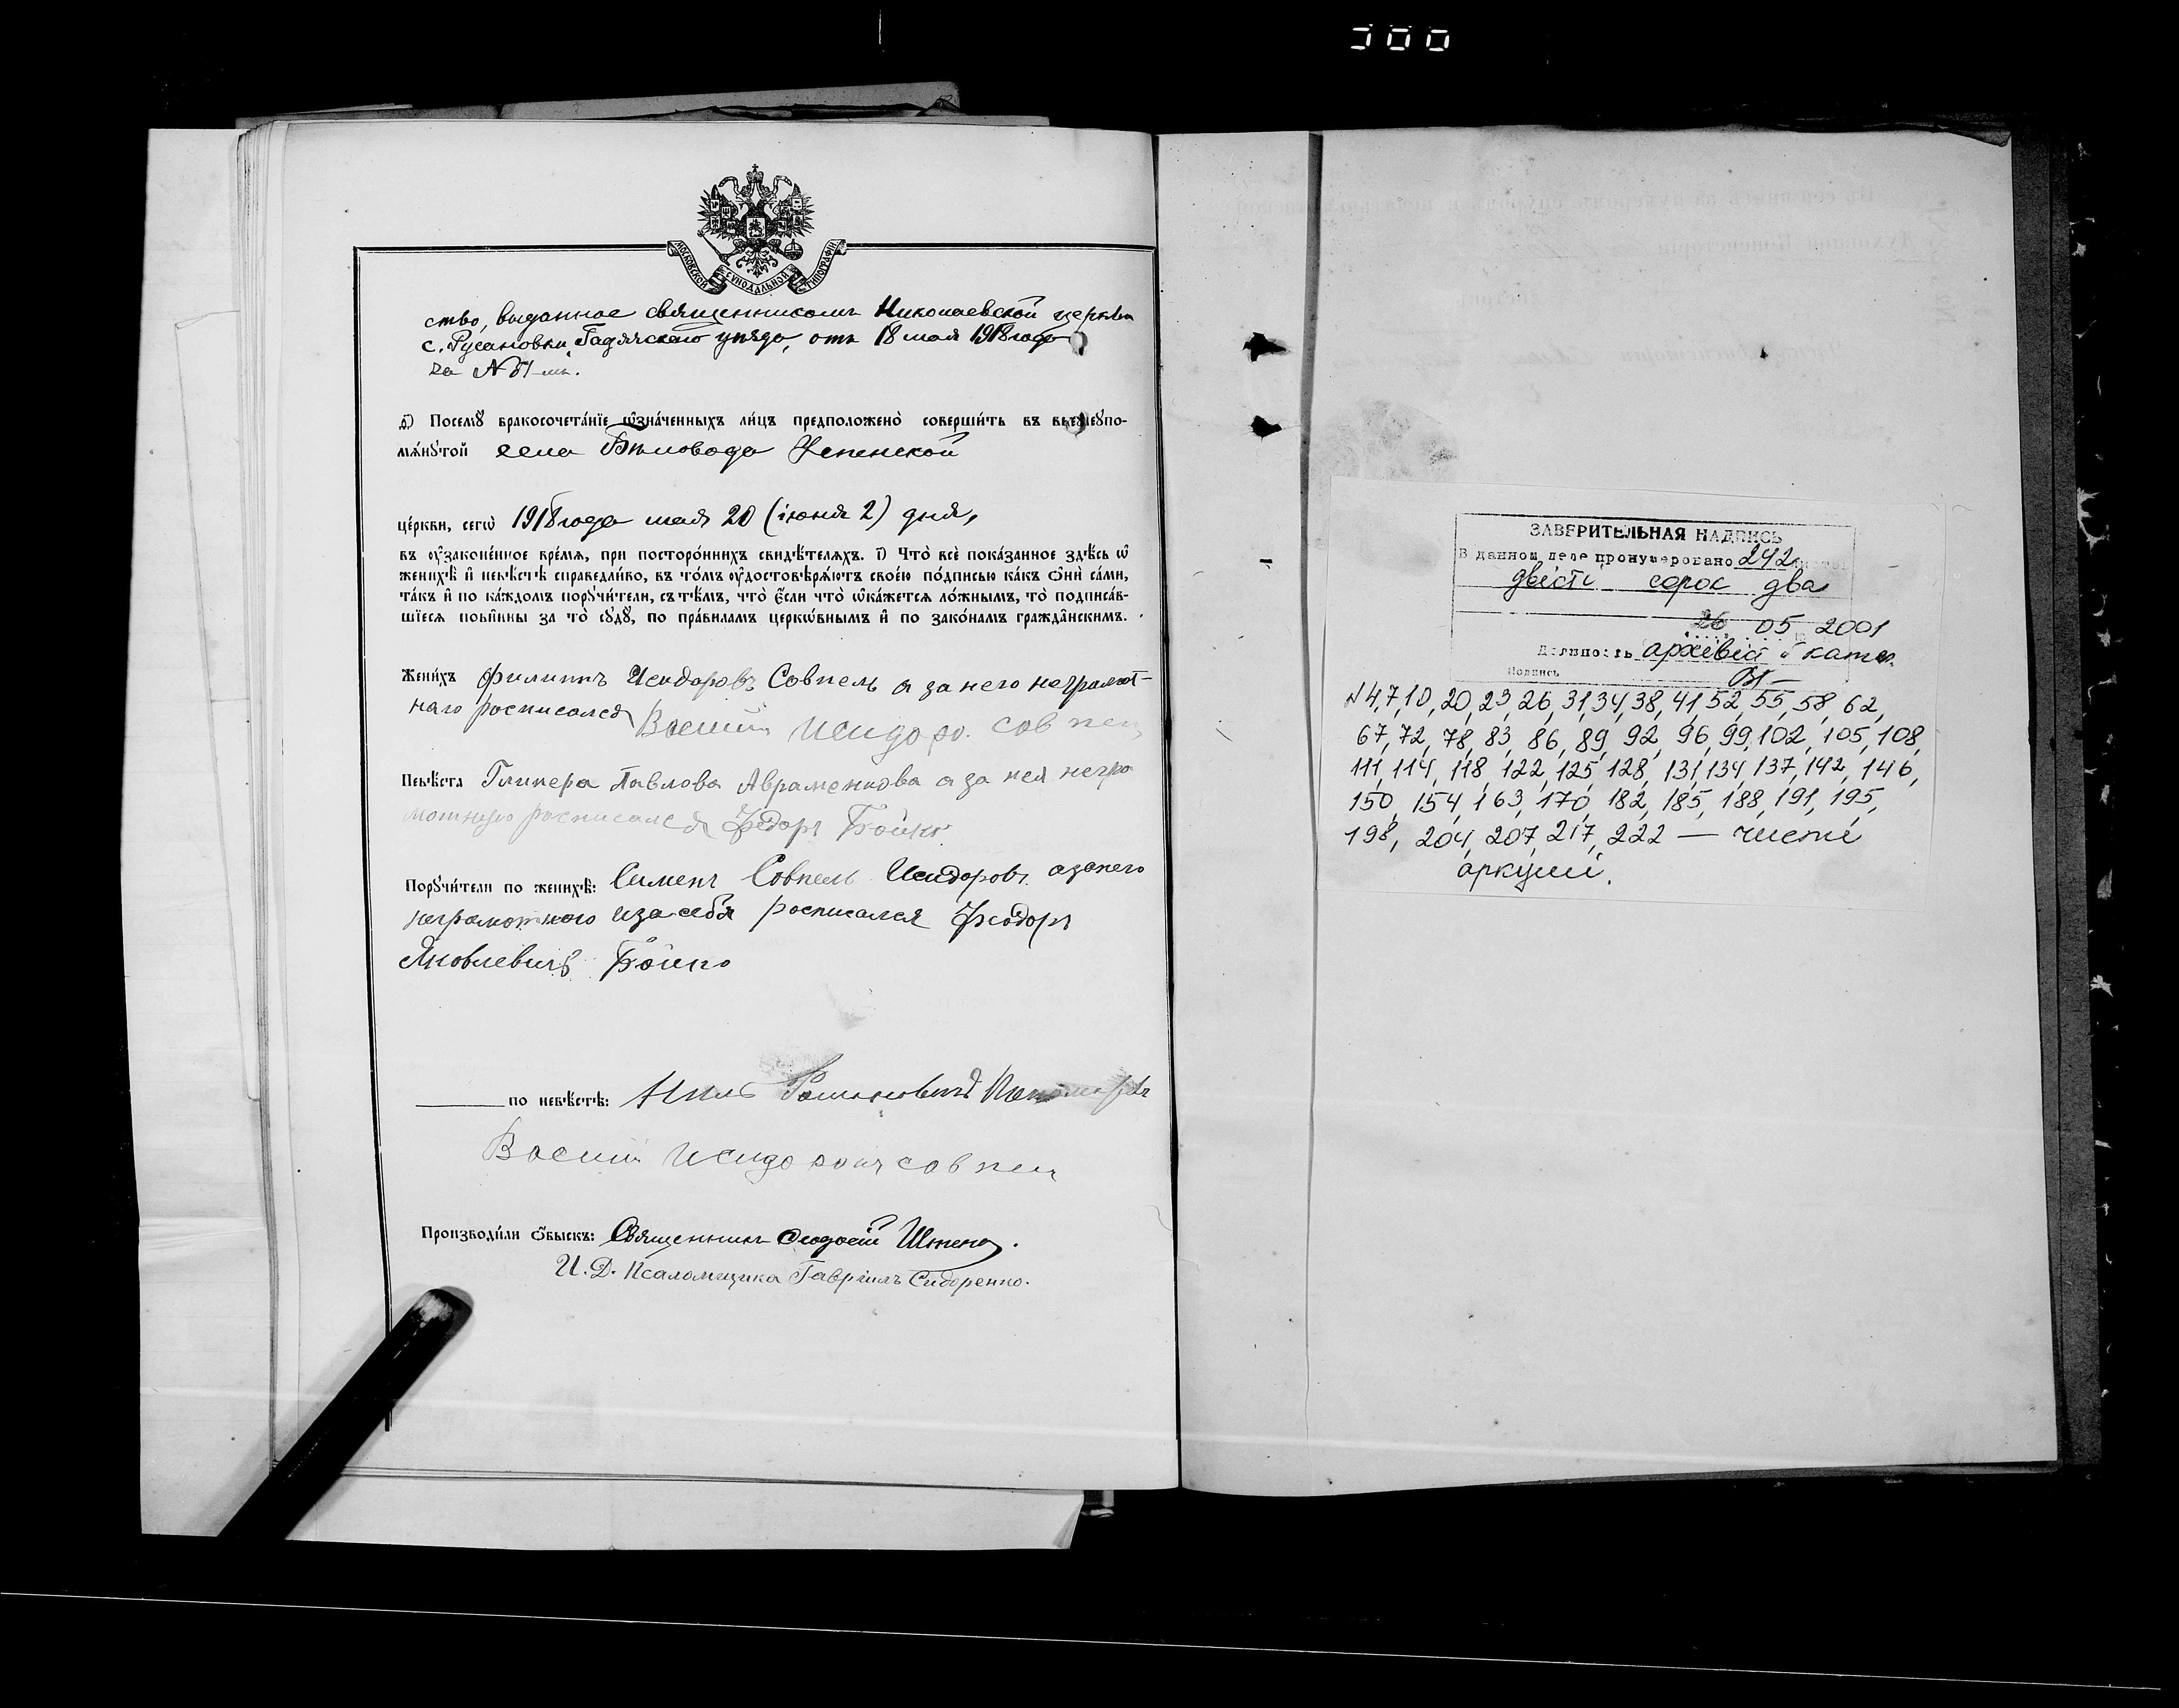 300
МОСКОВСКОЙ СѴНОДАЛЬНОЙ ТИПОГРАФІИ
ство, выданное священникомъ Николаевской церкви
с. Русановки, Гадячскаго уѣзда, отъ 18 мая 1918 года
за № 51-мъ.
д҃) Посемꙋ̀ бракосочета́нїе ѡ҆зна́ченныхъ ли́цъ предположено̀ соверши́ть въ вышеꙋпо-
мѧ́нꙋтой села Бѣловода Успенской
це́ркви, сегѡ̀ 1918 года мая 20 (іюня 2) дня,
въ ᲂу҆законе́нное вре́мѧ, при посторо́ннихъ свидѣ́телѧхъ. і҃) Что̀ всѐ пока́занное здѣ́сь ѡ҆
женихѣ̀ и҆ невѣ́стѣ справедли́во, въ то́мъ ᲂу҆достовѣрѧ́ютъ свое́ю по́дписью ка́къ ѻ҆нѝ са́ми,
та́къ и҆ по ка́ждомъ порꙋчи́тели, съ тѣ́мъ, что̀ є҆́сли что̀ ѡ҆ка́жетсѧ ло́жнымъ, то̀ подписа́в-
шїесѧ пови́нны за то̀ сꙋдꙋ̀, по пра́виламъ церко́внымъ и҆ по зако́намъ гражда́нскимъ.
Жени́хъ Филиппъ Исидоровъ Совпель а за него неграмот-
наго росписался Василий Исидоро. Совпел
Невѣ́ста Гликера Павлова Авраменкова а за нея негра
мотную росписался Федоръ Бойко
Порꙋчи́тели по женихѣ̀: Сименъ Совпель Исидоровъ а за него
неграмотного и за себя росписался Феодоръ
Яковлевичъ Бойко
по невѣ́стѣ:
Василий Исидорович Совпел
Производи́ли ѻ҆́быскъ: Священникъ Ѳеодосій
И. Д. Псаломщика Гавріилъ Сидоренко.
ЗАВЕРИТЕЛЬНАЯ НАДПИСЬ
В данном деле пронумеровано 242
двісті сорок два
26 05 2001
Должность архівіст
Подпись
№ 4, 7, 10, 20, 23, 26, 31, 34, 38, 41, 52, 55, 58, 62,
67, 72, 78, 83, 86, 89, 92, 96, 99, 102, 105, 108,
111, 114, 118, 122, 125, 128, 131, 134, 137, 142, 146,
150, 154, 163, 170, 182, 185, 188, 191, 195,
198, 204, 207, 217, 222 — чисті
аркуші.